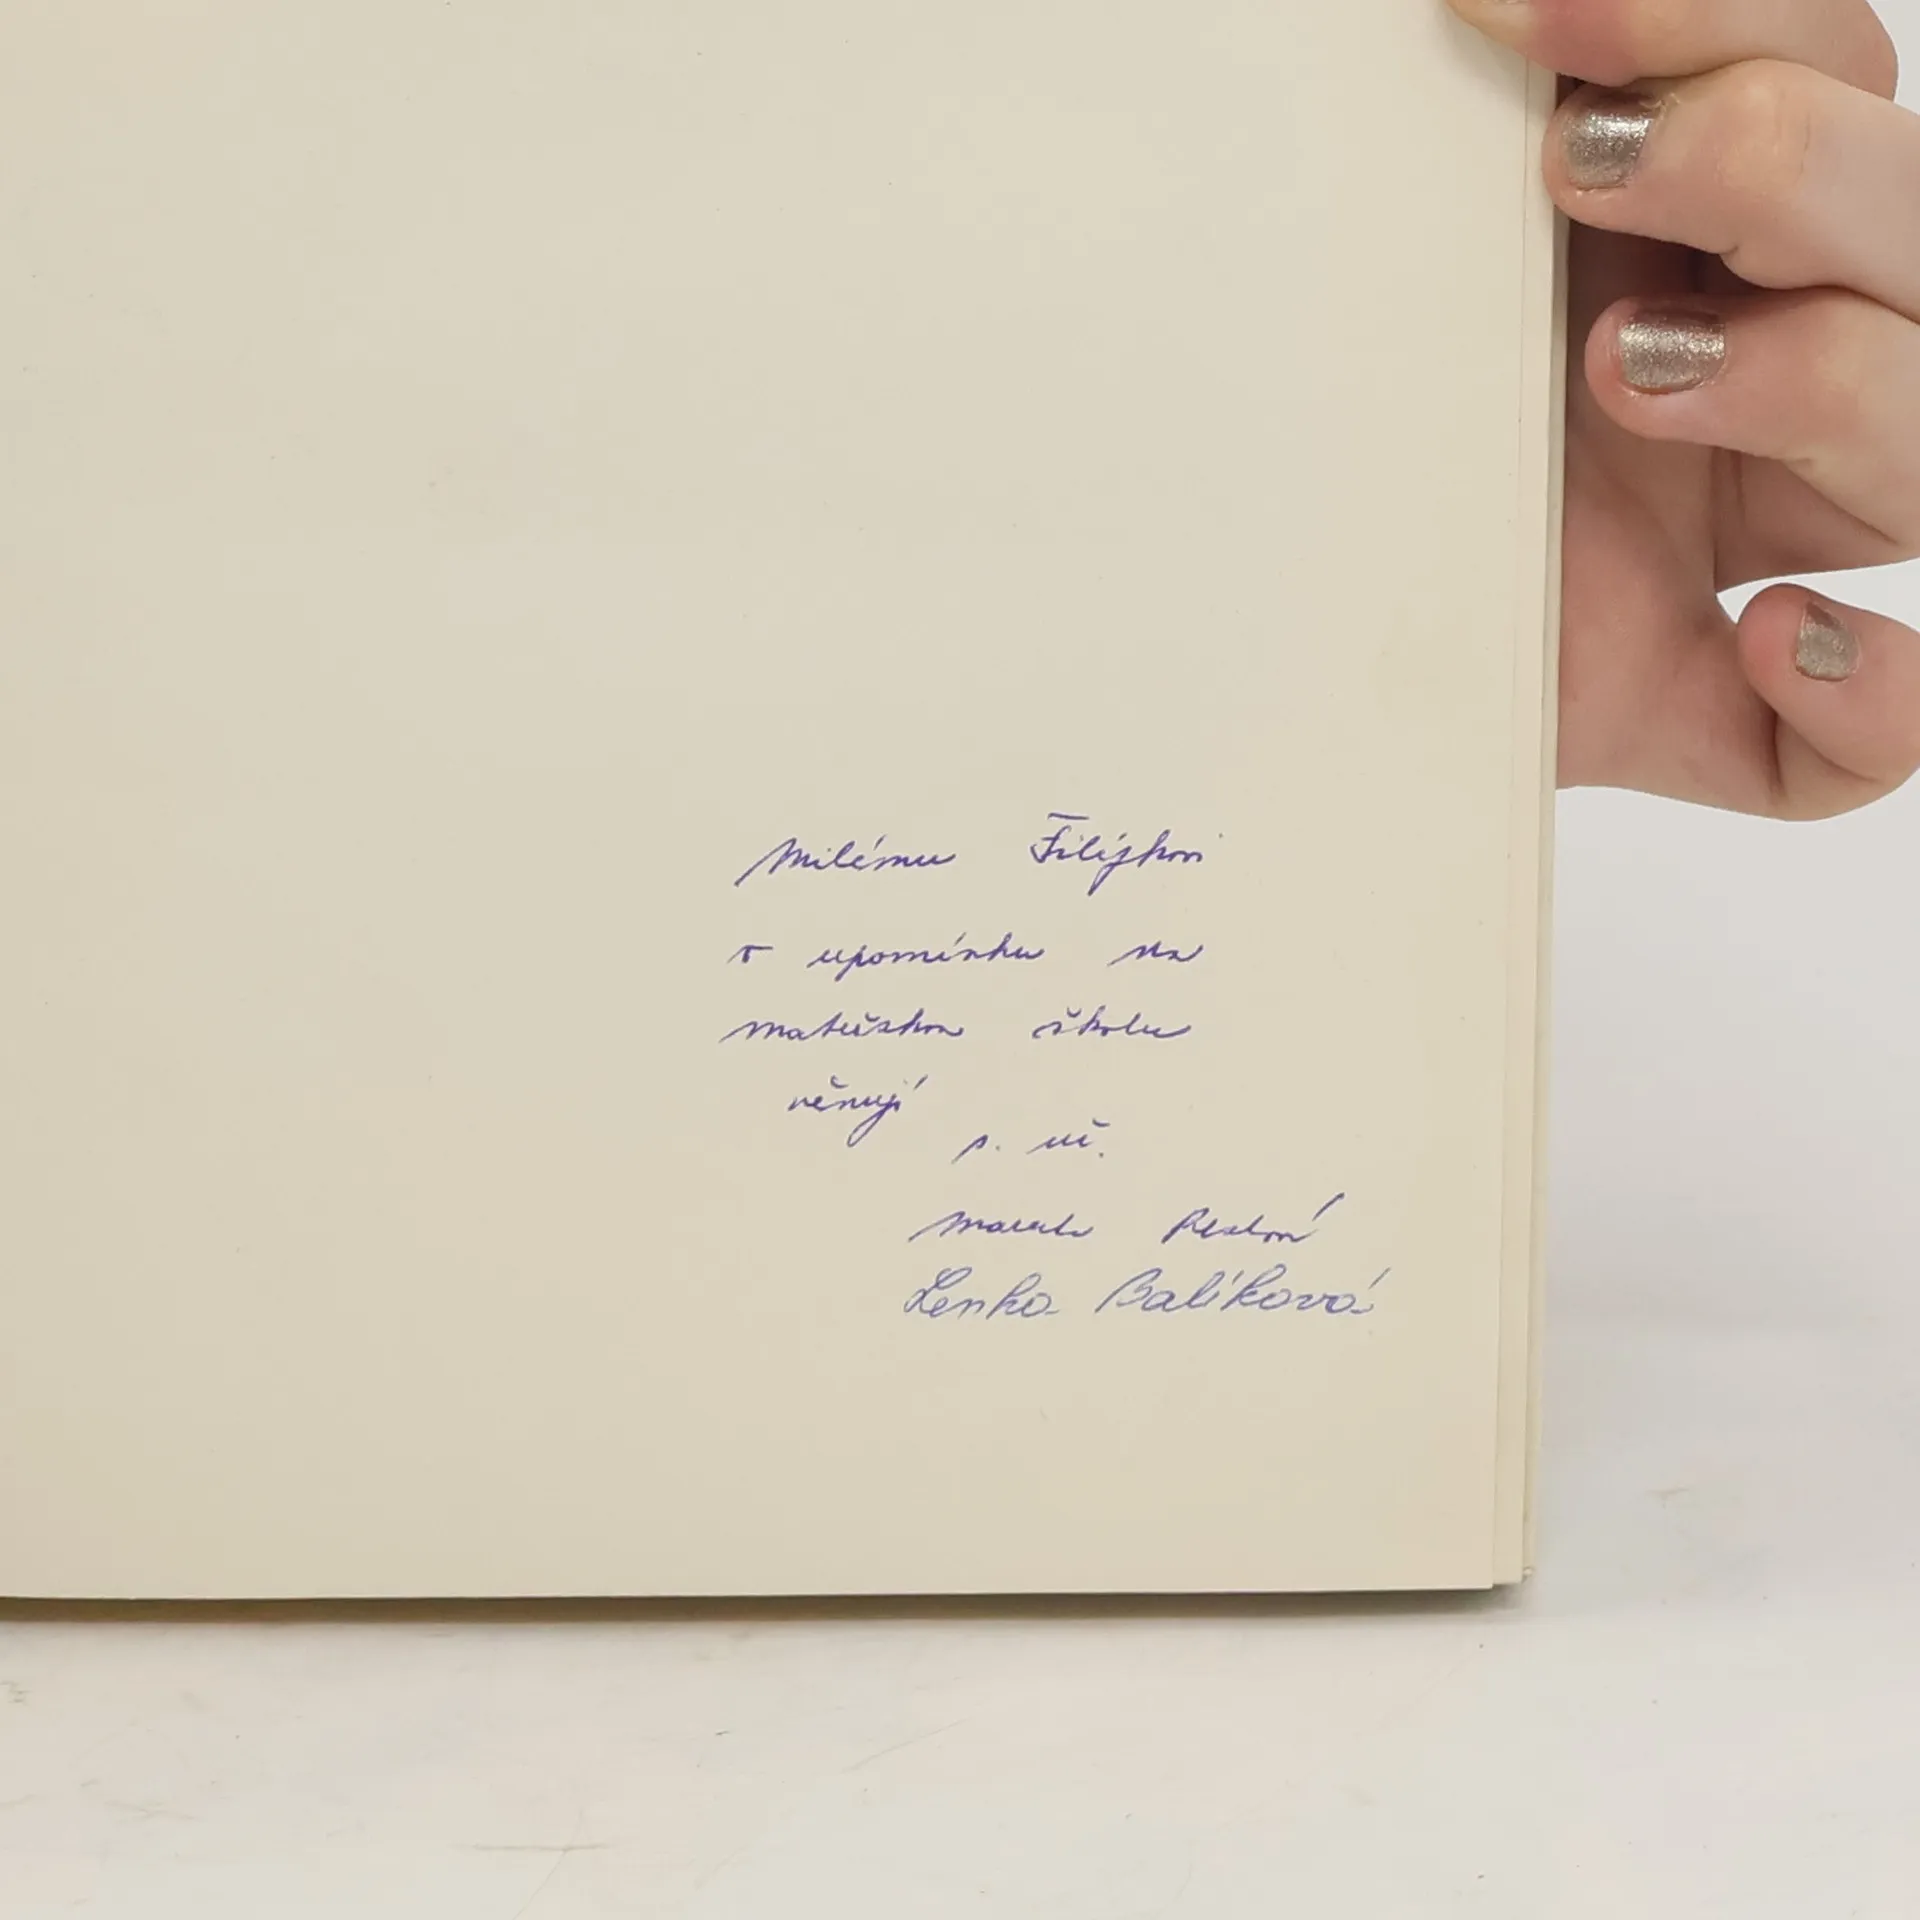 Milému Filípkovi
v upomínku na
mateřskou školu
věnují
p. uč.
Lenka Balíková